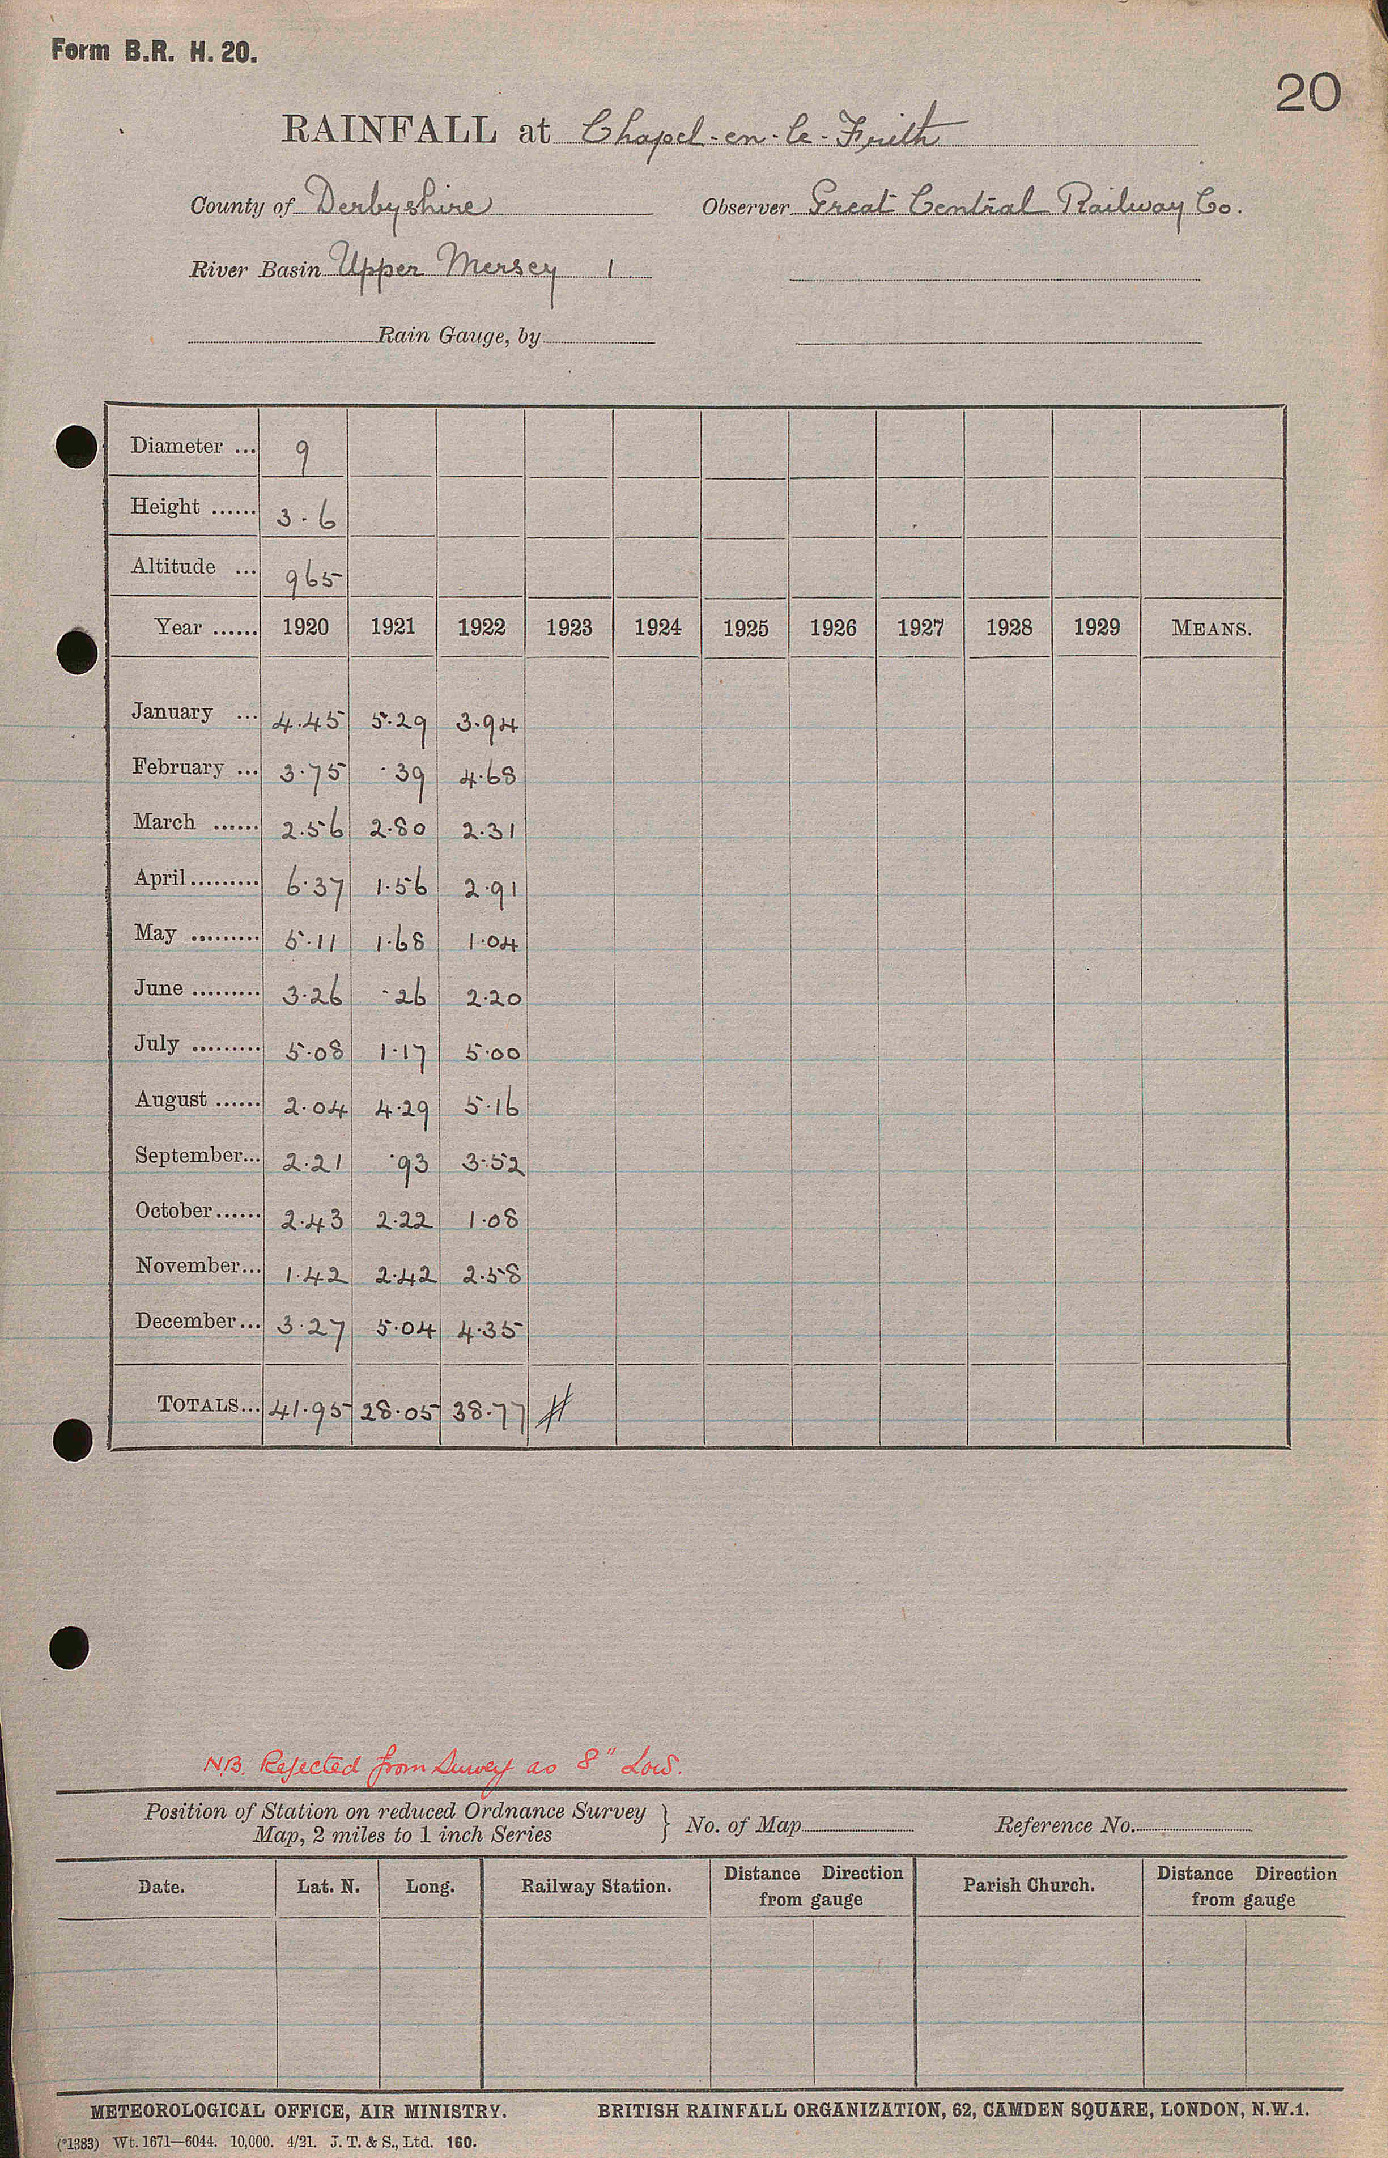 Form B.R. H. 20.
20
RAINFALL at Chapel-en-le-Frith
County of Derbyshire Observer Great Central Railway Co.
River Basin Upper Mersey 1
Rain Gauge, by
Diameter ... 9
Height ...... 3.6
Altitude ... 965
Year ...... 1920 1921 1922 1923 1924 1925 1926 1927 1928 1929 MEANS.
January ... 4.45 5.29 3.94
February ... 3.75 .39 4.68
March ...... 2.56 2.80 2.31
April ......... 6.37 1.56 2.91
May ......... 5.11 1.68 1.04
June ......... 3.26 .26 2.20
July ......... 5.08 1.17 5.00
August ...... 2.04 4.29 5.16
September... 2.21 .93 3.52
October...... 2.43 2.22 1.08
November... 1.42 2.42 2.58
December... 3.27 5.04 4.35
TOTALS... 41.95 28.05 38.77 #
N.B. Rejected from Survey as 8" Low.
Position of Station on reduced Ordnance Survey
Map, 2 miles to 1 inch Series } No. of Map Reference No.
Date. Lat. N. Long. Railway Station. Distance Direction from gauge Parish Church. Distance Direction from gauge
METEOROLOGICAL OFFICE, AIR MINISTRY. BRITISH RAINFALL ORGANIZATION, 62, CAMDEN SQUARE, LONDON, N.W.1.
(*1383) Wt. 1671—6044. 10,000. 4/21. J. T. & S., Ltd. 160.